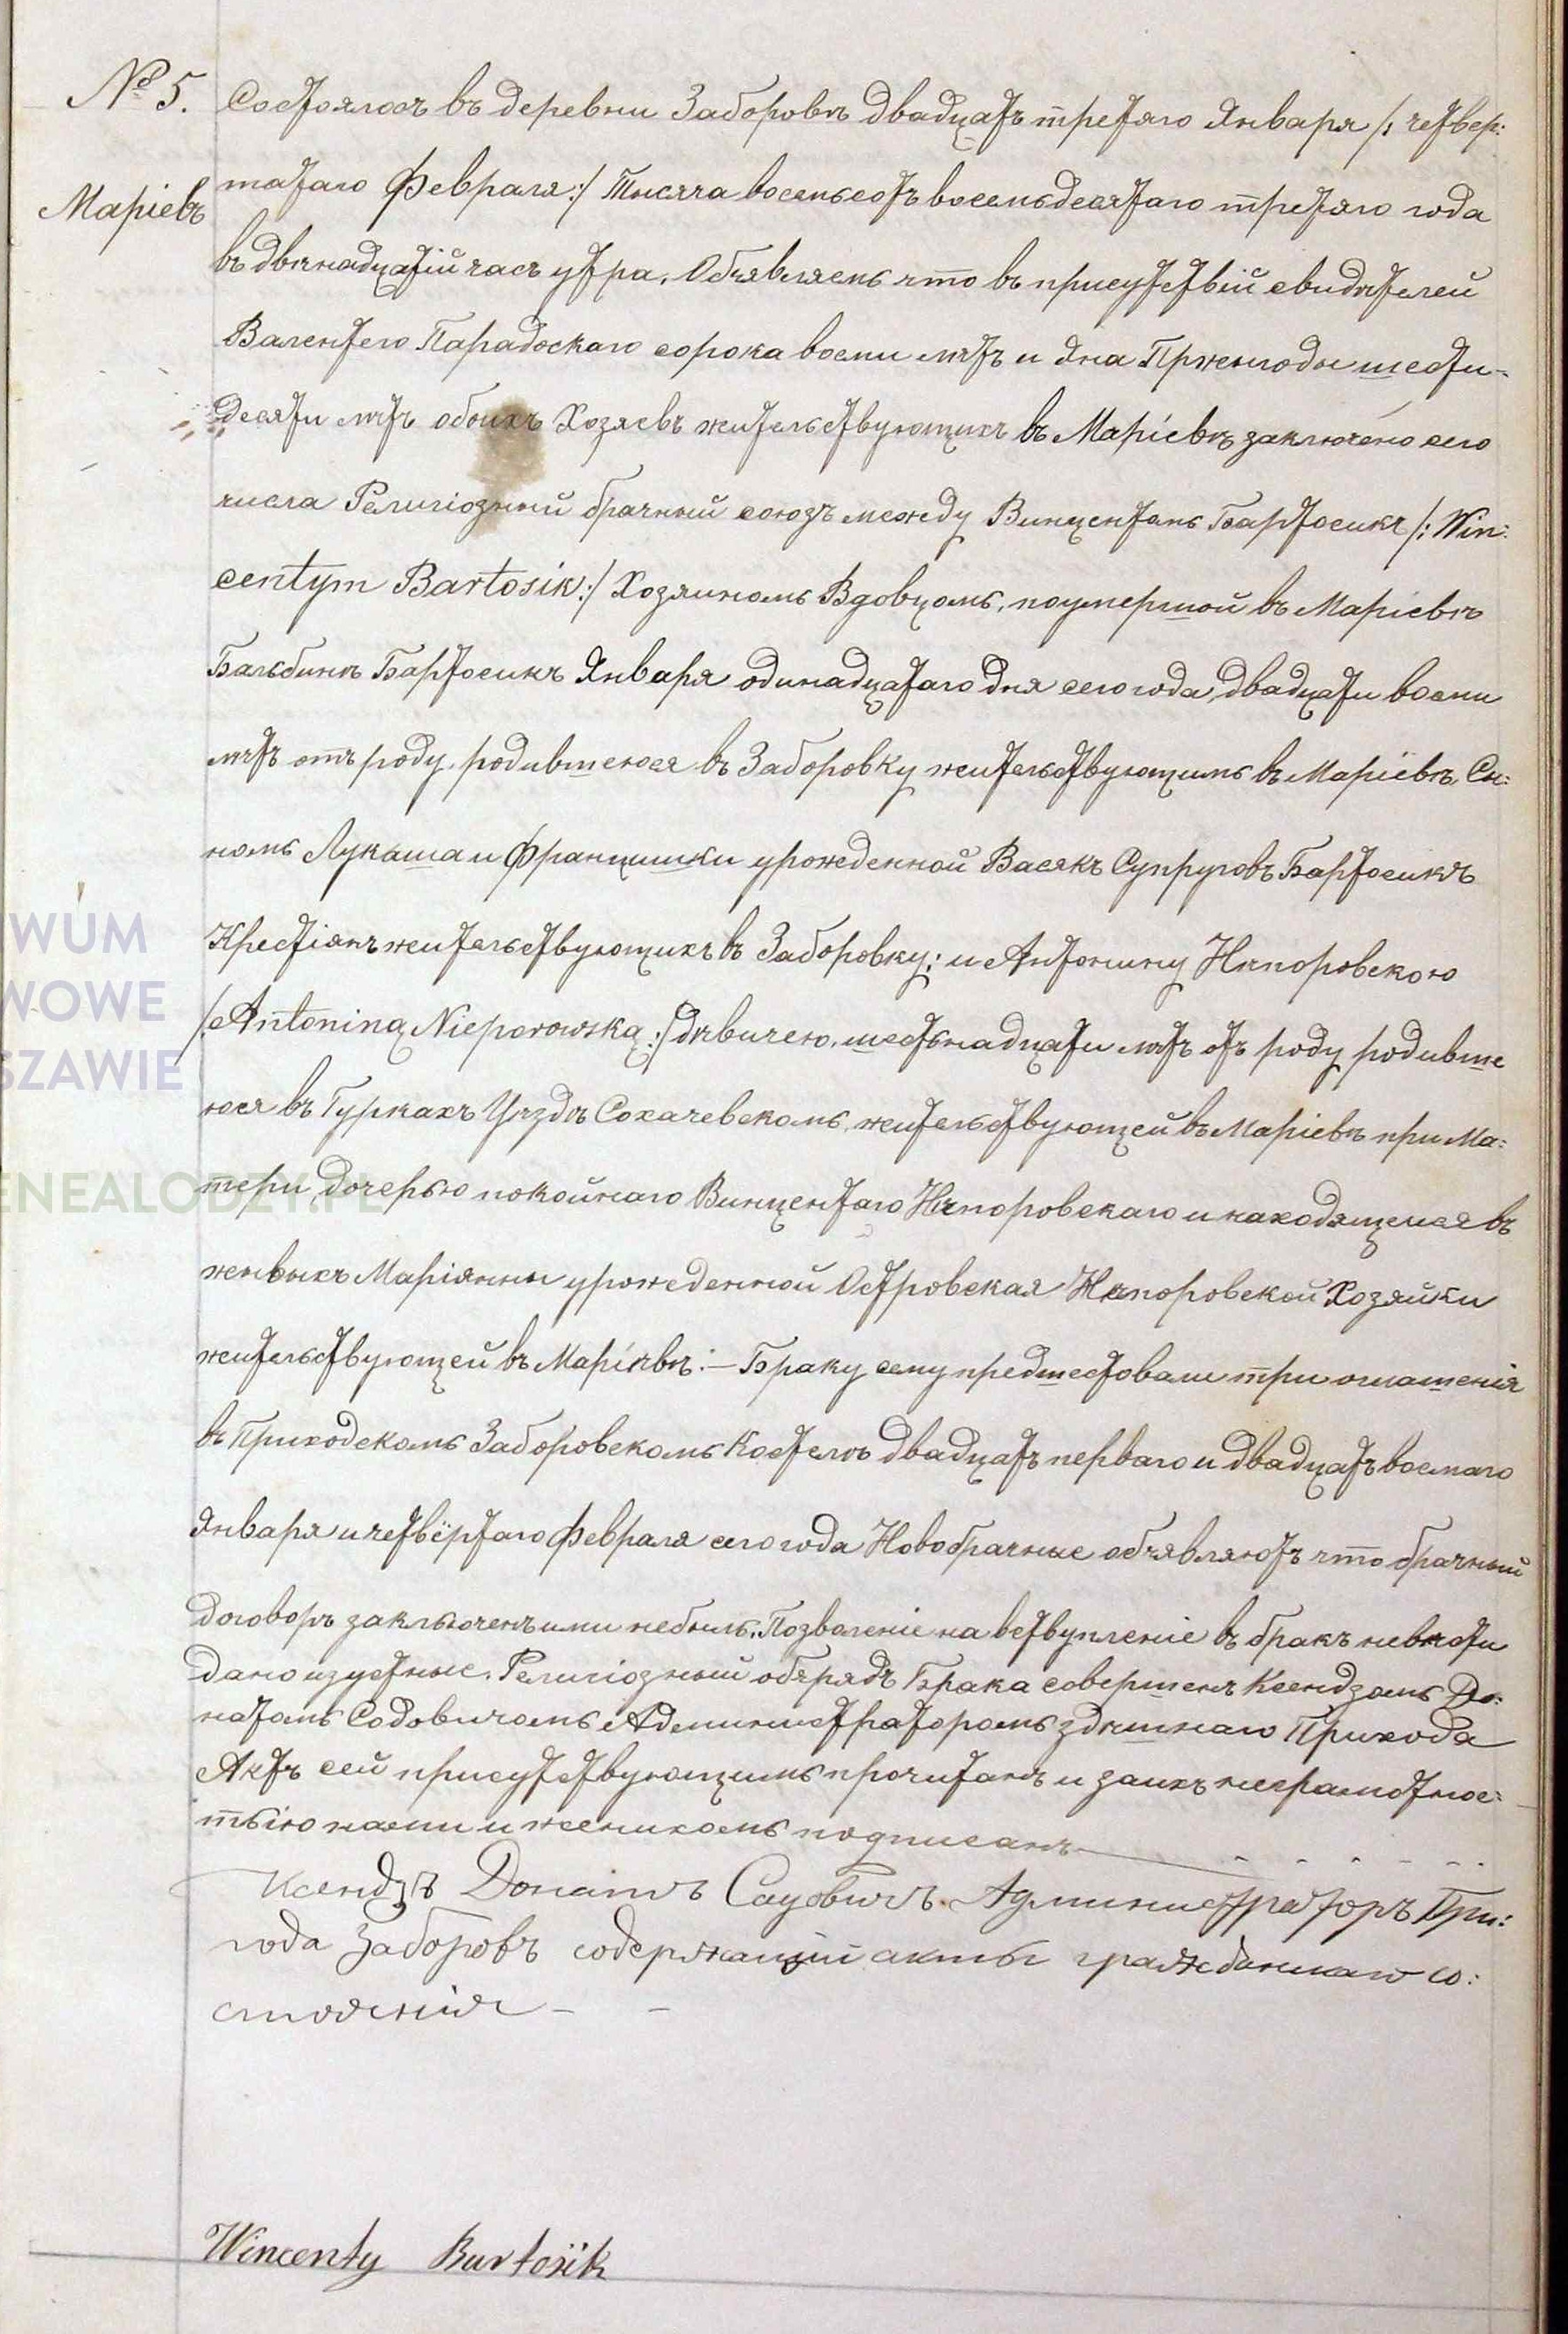 № 5.
Маріевъ
Состоялось въ деревни Заборовѣ двадцать третяго Января /: четвер:
татаго Февраля:/ Тысяча восемьсотъ восемьдесятаго третяго года
въ двѣнадцатій часъ утра. Объявляемъ что въ присутствій свидѣтелей
Валентего Парадоскаго сорока восми лѣтъ и Яна Пржеыгоды шести-
десяти лѣтъ обоихъ Хозяевъ жительствующихъ въ Маріевѣ заключено сего
числа Религіозный брачный союзъ между Винцентамъ Бартосикъ /: Win:
centym Bartosik:/ Хозяиномъ Вдовцомъ, поумершой въ Маріевѣ
Бальбинѣ Бартосикъ Января одинадцатаго дня сего года, двадцати восми
лѣтъ отъ роду, родившеюся въ Заборовку жительствующимъ въ Маріевѣ, Сы:
номъ Лукаша и Францишки урожденной Васякъ Супруговъ Бартосикъ
Крестіянъ жительствующихъ въ Заборовку; и Антонину Нѣпоровскою
/:Antoniną Nieporowską:/ дѣвичею, шестьнадцати лѣтъ отъ роду родивше
юся въ Гуркахъ Уѣздѣ Сохачевскомъ, жительствующей въ Маріевѣ при Ма:
тери, дочерью покойнаго Винцентаго Нѣпоровскаго и находящемся въ
женвыхъ Маріянны урожденной Островская Нѣпоровской Хозяйки
жительствующей въ Маріѣвѣ:— Браку сему предшествовали три оглашенія
въ Приходскомъ Заборовскомъ Костелѣ двадцать перваго и двадцать восмаго
Января и четвёртаго Февраля сего года Новобрачные объявляютъ что брачный
договоръ заключенъ ими небылъ. Позволеніе на вствупленіе въ бракъ невѣсти
дано изустные. Религіозный обрядъ Брака совершенъ Ксендзомъ До:
натомъ Садовичомъ Администраторомъ здѣшнаго Прихода
Актъ сей присутствующимъ прочитанъ и заихъ неграмотнос:
тьію нами и женихомъ подписанъ
Ксендзъ Донатъ Садовичъ Администраторъ При:
хода Заборовъ содержащій акты гражданскаго со:
стоянія
Wincenty Bartosik
WUM
WOWE
SZAWIE
ENEALODZY.PL